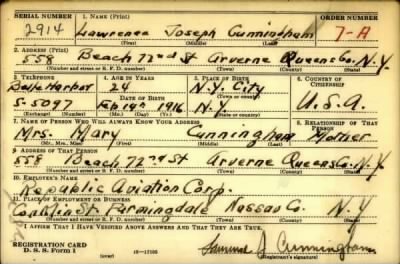 SERIAL NUMBER 1. NAME (Print) ORDER NUMBER
2914 Lawrence Joseph Cunningham 7-A
(First) (Middle) (Last)
2. ADDRESS (Print)
558 Beach 72nd St Arverne Queens Co. N.Y.
(Number and street or R. F. D. number) (Town) (County) (State)
3. TELEPHONE 4. AGE IN YEARS 5. PLACE OF BIRTH 6. COUNTRY OF CITIZENSHIP
Belle Harbor 24 N.Y. City
DATE OF BIRTH
5-5097 Feb 19th 1916 N.Y. U.S.A.
(Exchange) (Number) (Mo.) (Day) (Yr.) (State or country)
7. NAME OF PERSON WHO WILL ALWAYS KNOW YOUR ADDRESS 8. RELATIONSHIP OF THAT PERSON
Mrs. Mary Cunningham Mother
(Mr., Mrs., Miss) (First) (Middle) (Last)
9. ADDRESS OF THAT PERSON
558 Beach 72nd St Arverne Queens Co. N.Y.
(Number and street or R. F. D. number) (Town) (County) (State)
10. EMPLOYER'S NAME
Republic Aviation Corp.
11. PLACE OF EMPLOYMENT OR BUSINESS
Conklin St. Farmingdale Nassau Co. N.Y
(Number and street or R. F. D. number) (Town) (County) (State)
I AFFIRM THAT I HAVE VERIFIED ABOVE ANSWERS AND THAT THEY ARE TRUE.
REGISTRATION CARD
D. S. S. Form 1 J Cunningham
(Registrant's signature)